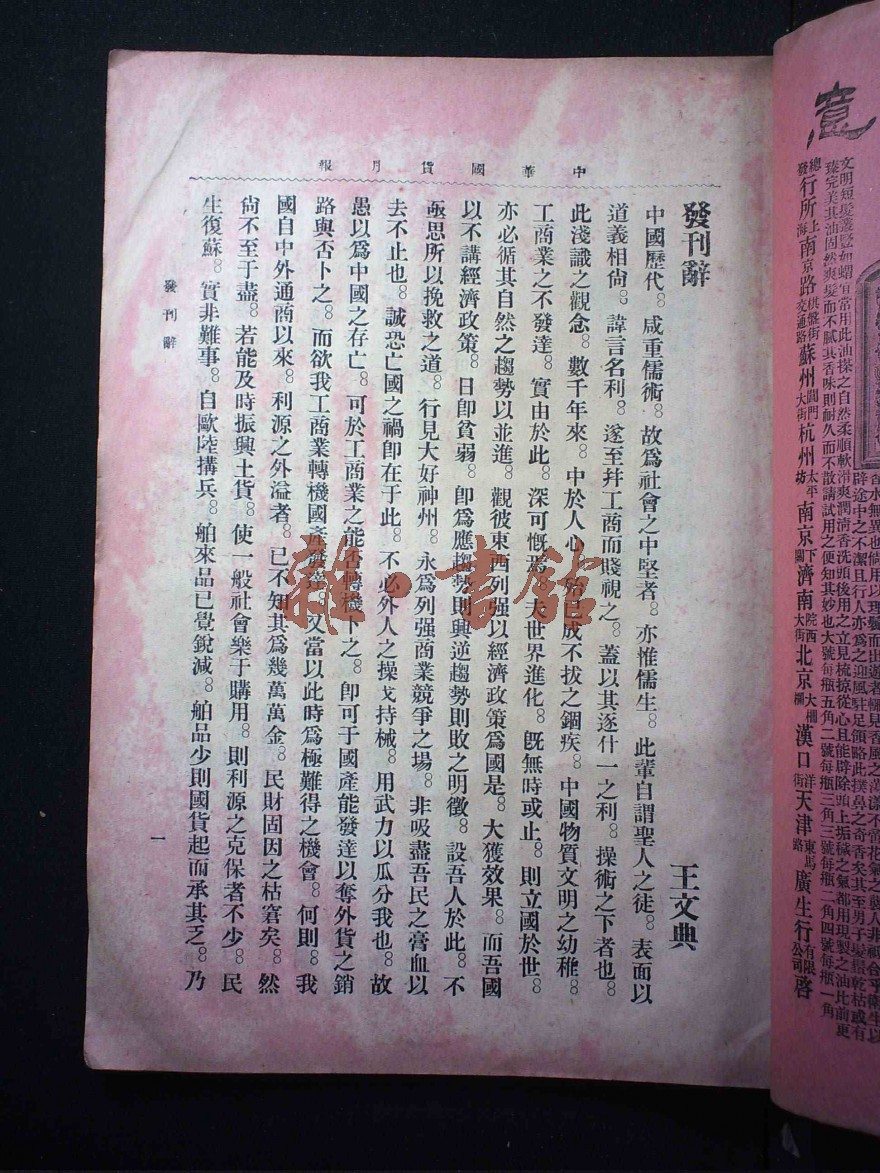 中華國貨月報
發刊辭 王文典
中國歷代。咸重儒術。故爲社會之中堅者。亦惟儒生。此輩自謂聖人之徒。表面以
道義相尙。諱言名利。遂至幷工商而賤視之。蓋以其逐什一之利。操術之下者也。
此淺識之觀念。數千年來。中於人心。殆已成不拔之錮疾。中國物質文明之幼稚。
工商業之不發達。實由於此。深可慨焉。夫世界進化。旣無時或止。則立國於世。
亦必循其自然之趨勢以並進。觀彼東西列强以經濟政策爲國是。大獲效果。而吾國
以不講經濟政策。日卽貧弱。卽爲應趨勢則興逆趨勢則敗之明徵。設吾人於此。不
亟思所以挽救之道。行見大好神州。永爲列强商業競爭之場。非吸盡吾民之膏血以
去不止也。誠恐亡國之禍卽在于此。不必外人之操戈持械。用武力以瓜分我也。故
愚以爲中國之存亡。可於工商業之能否轉機卜之。卽可于國產能發達以奪外貨之銷
路與否卜之。而欲我工商業轉機國產發達。又當以此時爲極難得之機會。何則。我
國自中外通商以來。利源之外溢者。已不知其爲幾萬萬金。民財固因之枯窘矣。然
尙不至于盡。若能及時振興土貨。使一般社會樂于購用。則利源之克保者不少。民
生復蘇。實非難事。自歐陸搆兵。舶來品已覺銳減。舶品少則國貨起而承其乏。乃
發刊辭 一
文明短髮叢豎如蝟宜常用此油搽之自然柔順軟滑爽潤淸香洗頭後用之立見梳掠從心且能辟除頭上垢穢之氣都用現製之油比前更
臻完美其油固然爽髮而不膩其香味則耐久而不散請試用之便知其妙也大號每瓶五角二號每瓶三角三號每瓶二角四號每瓶一角
總發行所上海南京路棋盤街交通路蘇州閶門大街杭州太平坊南京下關濟南院西大街北京大柵欄漢口洋街天津東馬路廣生行有限公司啓
雜·書館